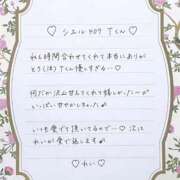 ♡ シエル409 Tくん ♡
私も時間合わせてくれて本当にありが
とう(;;) Tくん優しすぎる…♡
何だか沢山甘えてくれて嬉しかったー♡
いっぱい甘やかしちゃった♪
いつも愛でて頂いてるので…♡ 次は
れいが愛で返します♪
♡ れい ♡